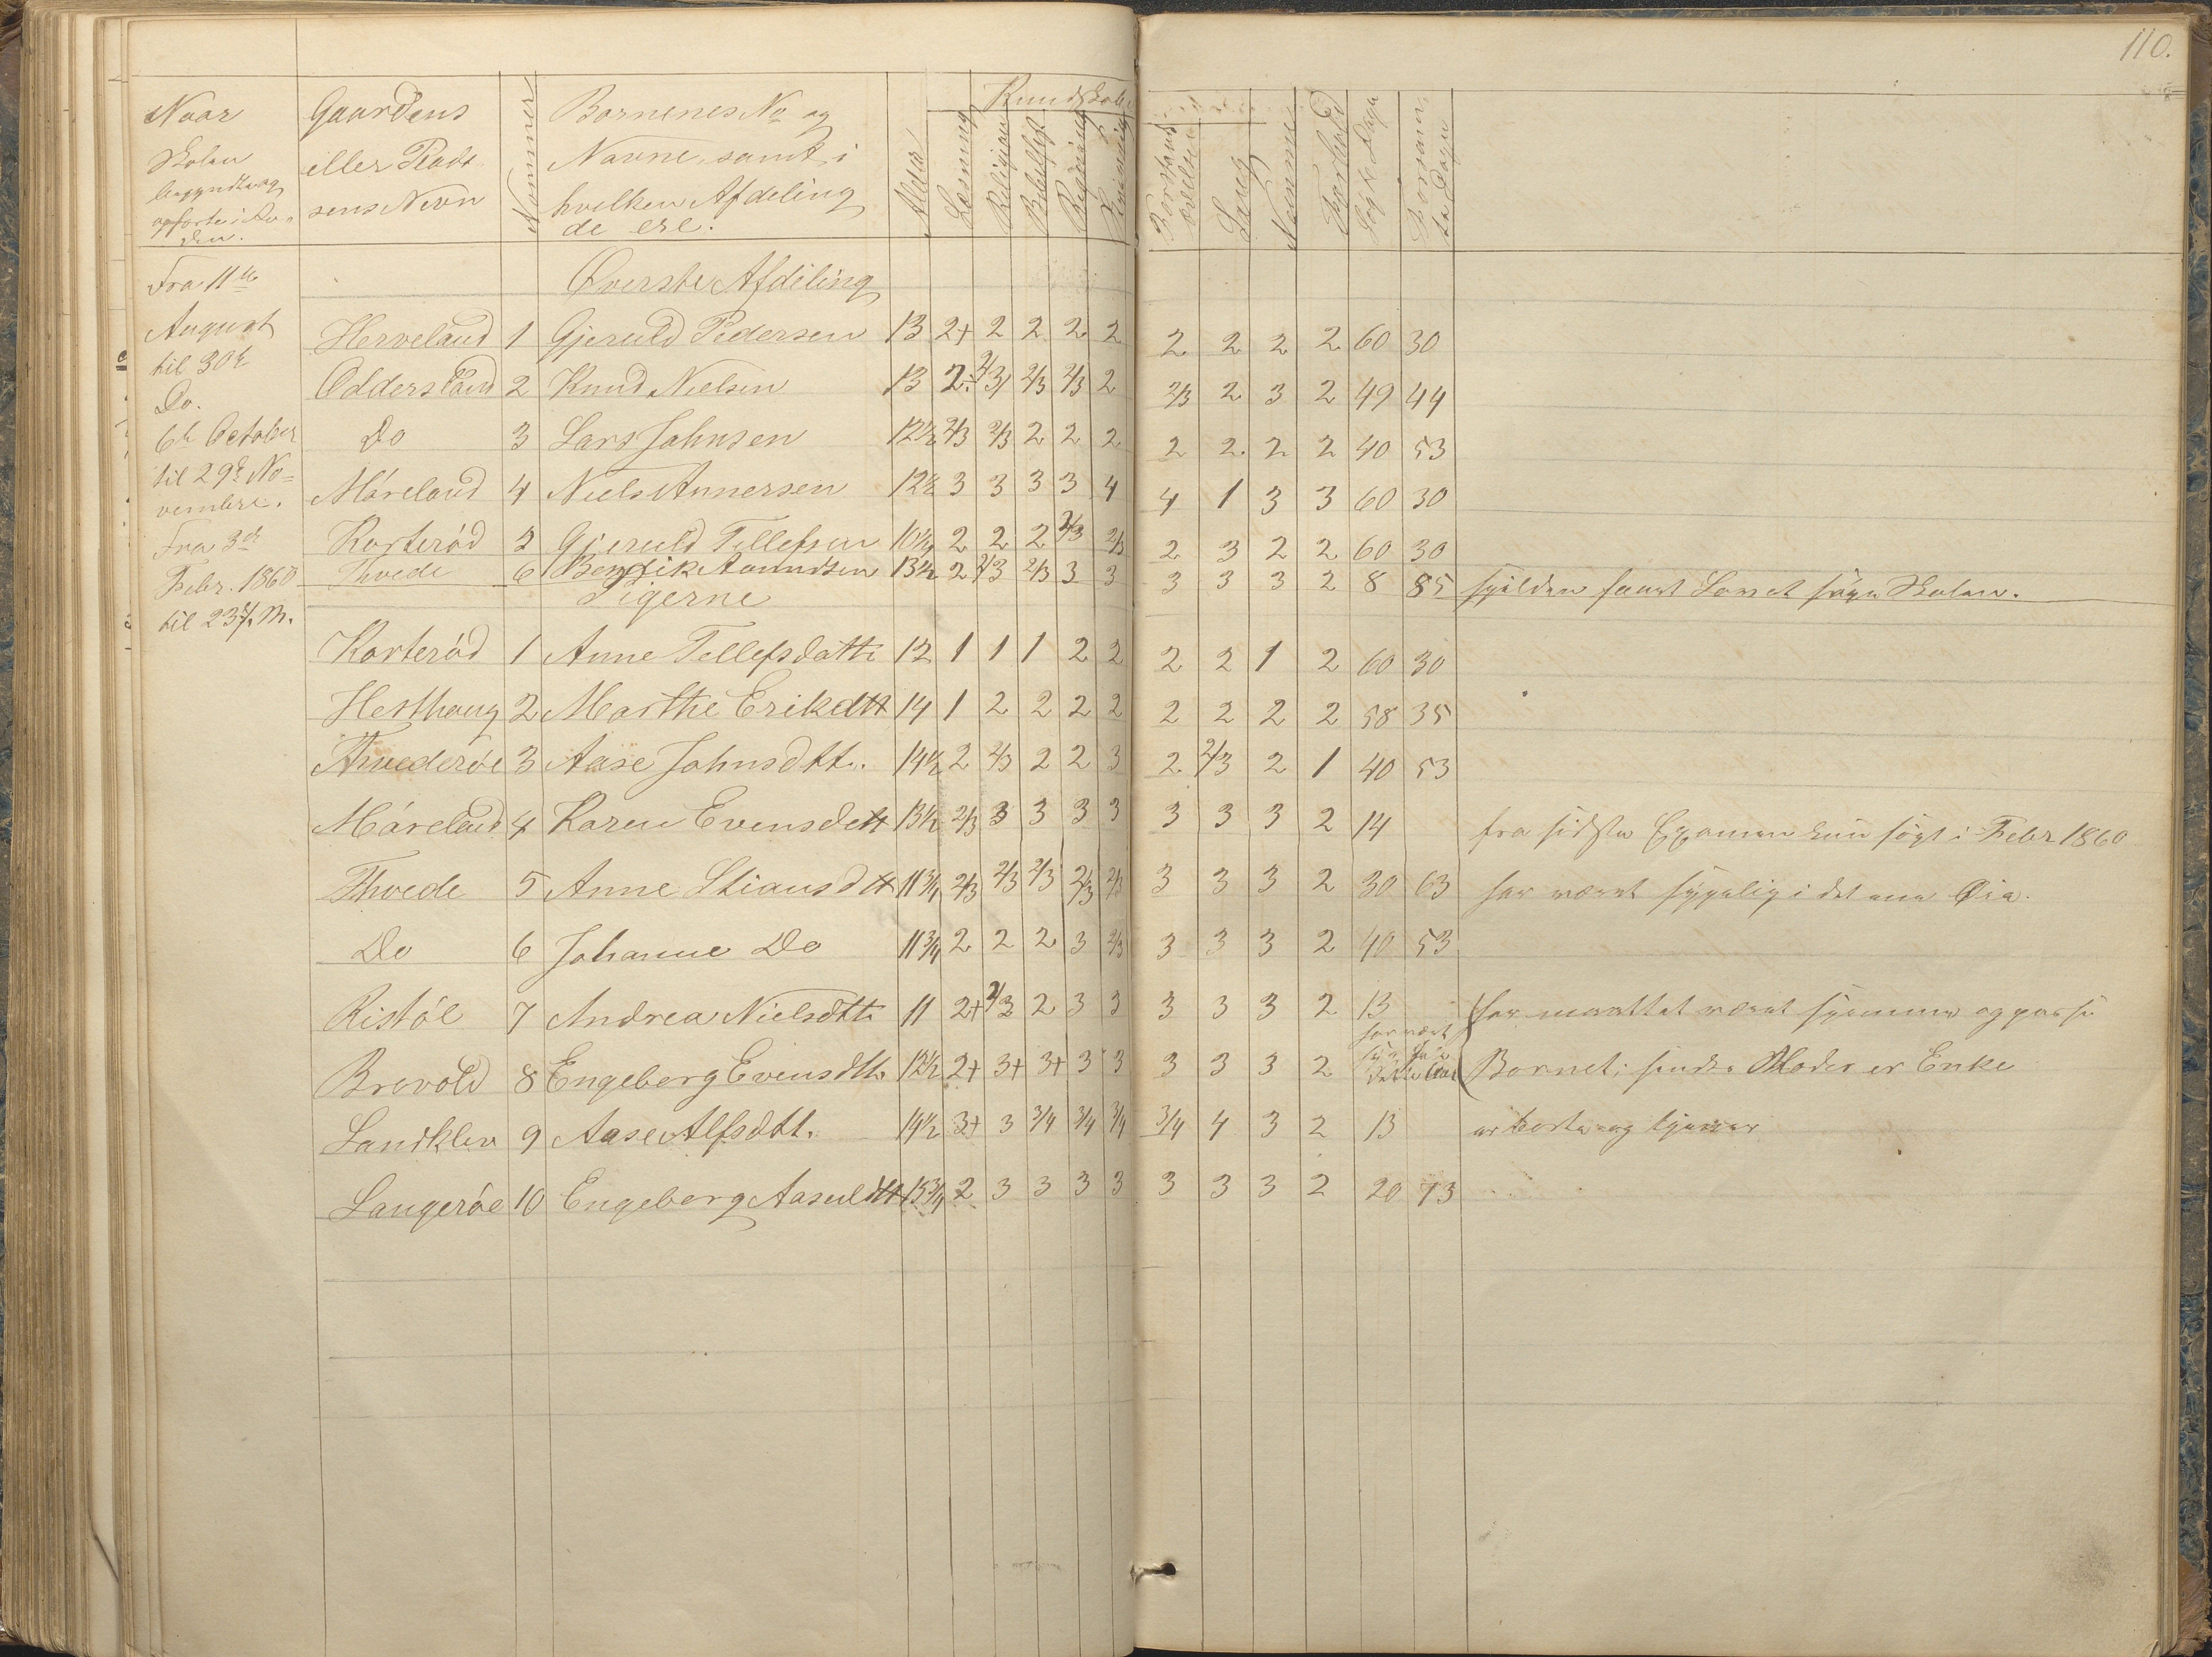 110.
Naar Skolen begyndte og opførte i Au- den.
Gaardens eller Plads sens Nevn
Nommer
Børnenes No og Navne, samt i hvilken Afdeling de ere.
Alder
Kundskaber
Læsning
Religion
Regning
Sang
Forhold
Søgte Dage
Forsømte Dage
Fra 11te
August
til 30te
Do.
6te October
til 29de No=
vember.
Fra 3de
Febr. 1860
til 23d. M.
Øverste Afdeling
Herveland 1 Gjeruld Pedersen 13 2+ 2 2 2 2 2 2 2 2 60 30
Oddersland 2 Knud Nielsen 13 2÷ 2/3 2/3 2/3 2 2/3 2 3 2 49 44
Do 3 Lars Johnsen 12½ 2/3 2/3 2 2 2 2 2 2 2 40 53
Måreland 4 Niels Annersen 12½ 3 3 3 3 4 4 1 3 3 60 30
Korterød 5 Gjeruld Tellefsen 10½ 2 2 2 2/3 2/3 2 3 2 2 60 30
Thvede 6 Bendik Aanundsen 13½ 2 2/3 2/3 3 3 3 3 3 2 8 85 sjelden faaet Lov at søge Skolen.
Pigerne
Korterød 1 Anne Tellefsdatt 12 1 1 1 2 2 2 2 1 2 60 30
Hesthaug 2 Marthe Erikdtt 14 1 2 2 2 2 2 2 2 2 58 35
Thvederøe 3 Aase Johnsdtt. 14½ 2 2/3 2 2 3 2 2/3 2 1 40 53
Måreland 4 Karen Evensdtt 13½ 2/3 3 3 3 3 3 3 3 2 14 fra sidste Examen kun søgt i Febr 1860
Thvede 5 Anne Stiansdtt 11¾ 2/3 2/3 2/3 2/3 2/3 3 3 3 2 30 63 har været sygelig i det ene Øie.
Do 6 Johanne Do 11¾ 2 2 2 3 2/3 3 3 3 2 40 53
Ristøl 7 Andrea Nielsdtt 11 2+ 2/3 2 3 3 3 3 3 2 13 har maattet været hjemme og passe
Brovold 8 Engeborg Evensdtt. 12½ 2+ 3+ 3+ 3 3 3 3 3 2 har vært syg hele dette Aar Barnet; hendes Moder er Enke
Landklev 9 Aase Alfsdtt. 14½ 3+ 3 3/4 3/4 3/4 3/4 4 3 2 13 er borte og tjener
Langerøe 10 Engeborg Aasuldtt 13¾ 2 3 3 3 3 3 3 3 2 20 73